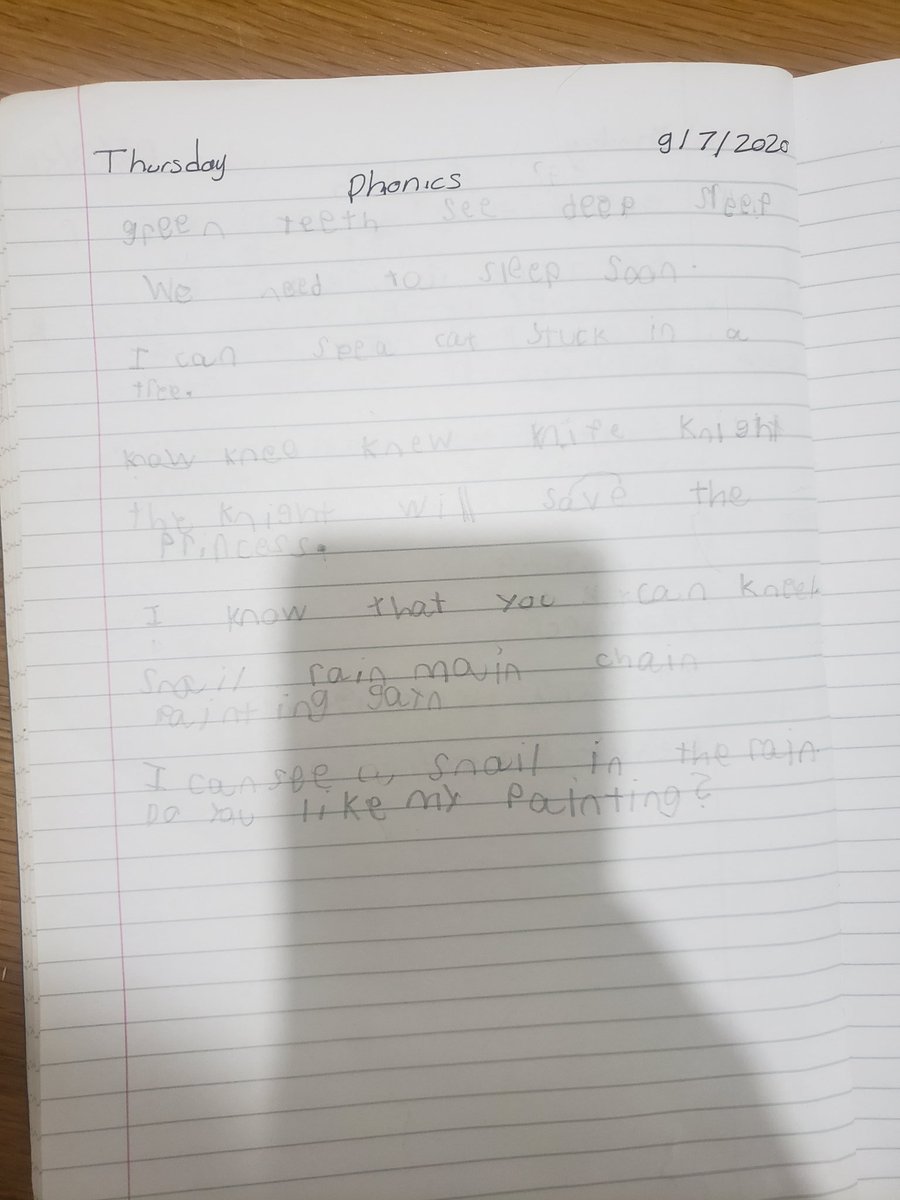 Thursday 9/7/2020
Phonics
green teeth see deep sleep
We need to sleep soon.
I can see a cat stuck in a
tree.
know knee knew knife knight
the knight will save the
princess.
I know that you can kneel
snail rain main chain
painting gain
I can see a snail in the rain
Do you like my painting?